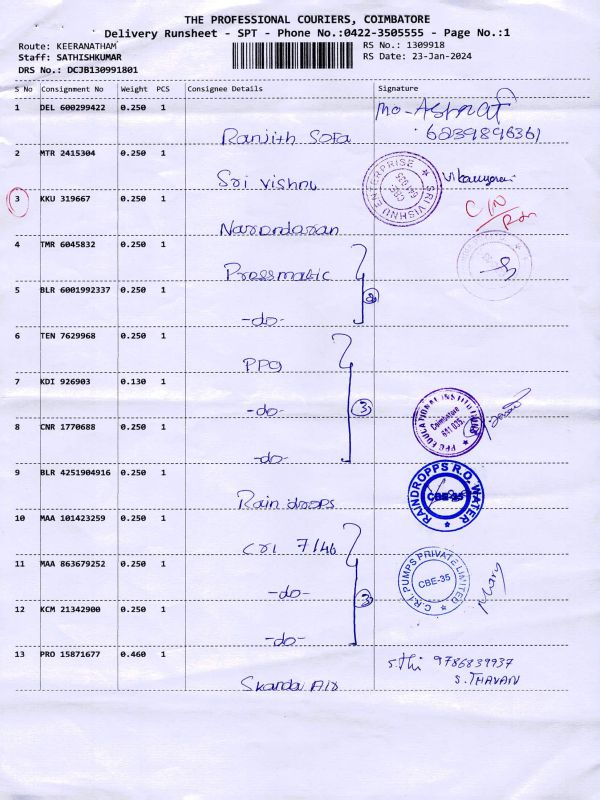 THE PROFESSIONAL COURIERS, COIMBATORE
Delivery Runsheet - SPT - Phone No.:0422-3505555 - Page No.:1
Route: KEERANATHAM
RS No.: 1309918
Staff: SATHISHKUMAR
RS Date: 23-Jan-2024
DRS No.: DCJB130991801
S No Consignment No Weight PCS Consignee Details Signature
1 DEL 600299422 0.250 1
Ranjith Sofa
6239896361
2 MTR 2415304 0.250 1
Sri Vishnu
SRI VISHNU ENTERPRISE
CBE
641 035
3 KKU 319667 0.250 1
Narendaran
4 TMR 6045832 0.250 1
Pressmatic
5 BLR 6001992337 0.250 1
-do-
2
6 TEN 7629968 0.250 1
PPG
7 KDI 926903 0.130 1
-do-
3
PPG EDUCATIONAL INSTITUTIONS
Coimbatore
641 035
8 CNR 1770688 0.250 1
-do-
9 BLR 4251904916 0.250 1
Rain drops
RAINDROPPS R.O. WATER
CBE-35
10 MAA 101423259 0.250 1
CRI 7/46
11 MAA 863679252 0.250 1
-do-
3
C.R.I. PUMPS PRIVATE LIMITED
CBE-35
12 KCM 21342900 0.250 1
-do-
13 PRO 15871677 0.460 1
Skanda Air
9786839937
S. THAVAN